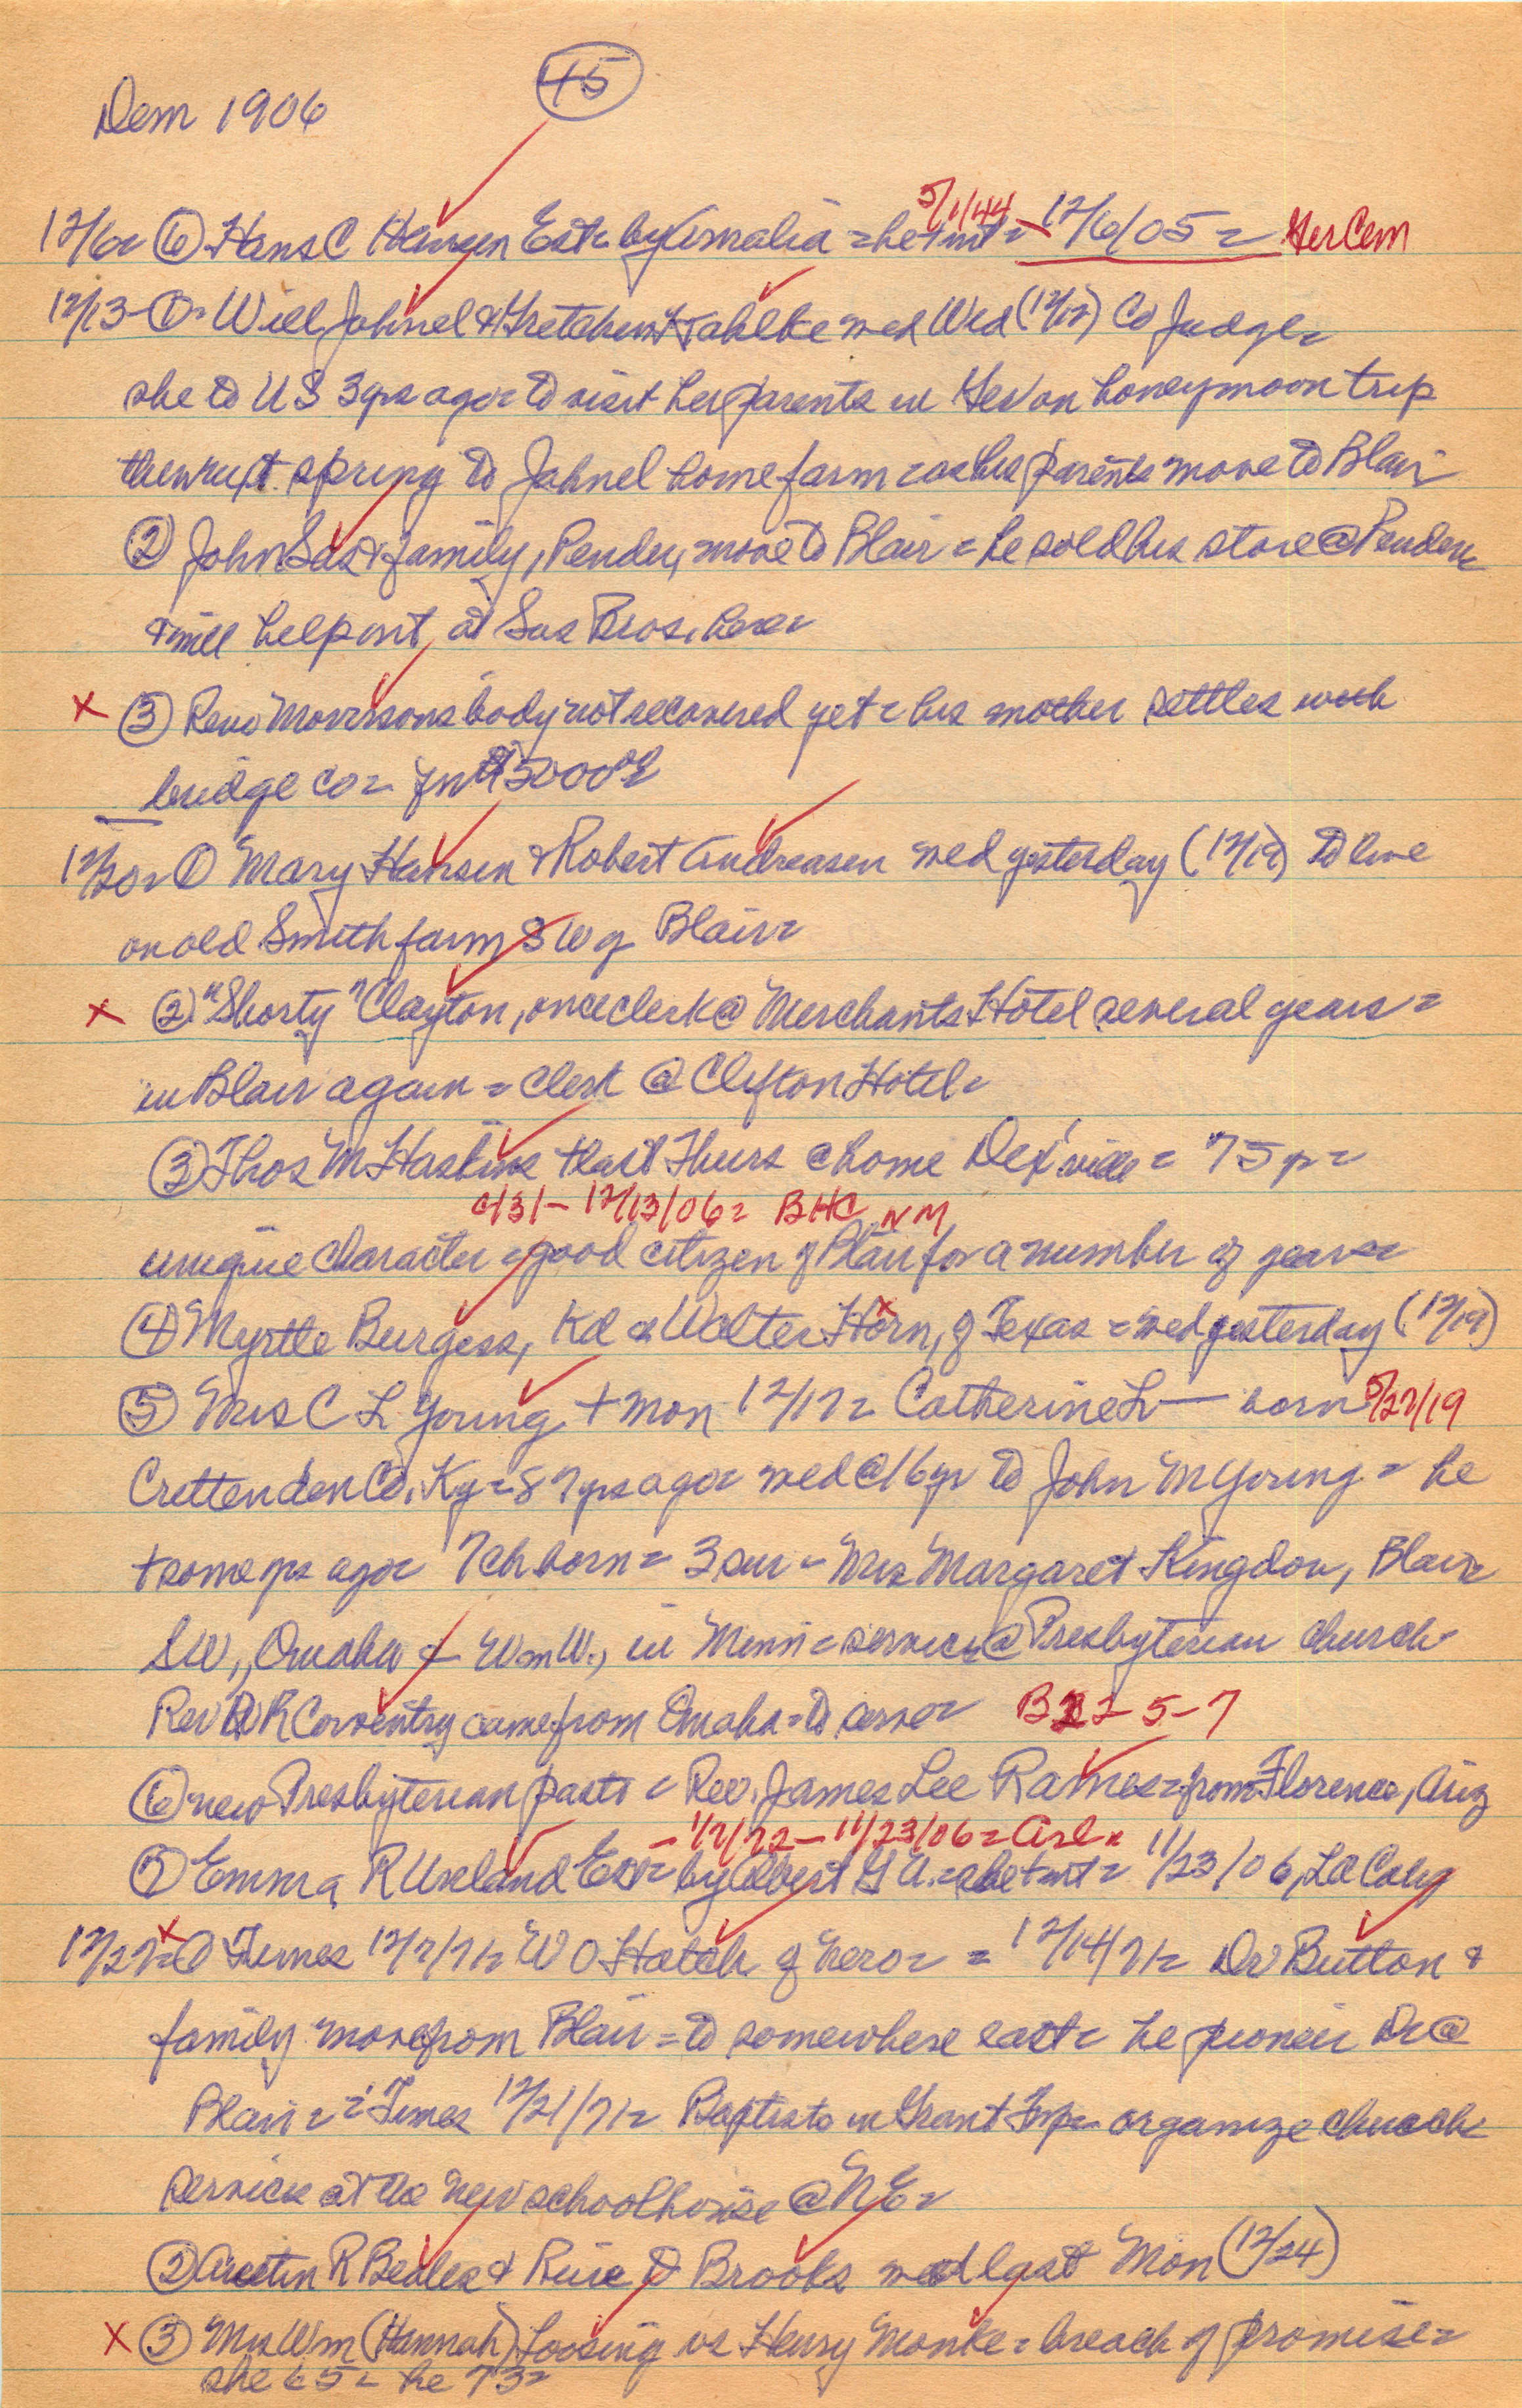 45
Dem 1906
5/1/44 -
12/6= ⑥ Hans C Hansen Est= by Amalia = he + int = 12/6/05 = Her Cem
12/13 - ①= Will Jahnel & Gretchen Kahlke wed Wed (12/12) Co Judge=
she to US 3 yrs ago= to visit her parents in Ger on honeymoon trip
then next spring to Jahnel home farm = as his parents move to Blair
② John Sas & family, Pender, move to Blair = he sold his store @ Pender
& will help out at Sas Bros. here=
x ③ Rev Morrisons body not recovered yet = his mother settles with
bridge co=
12/20= ① Mary Hansen & Robert Andreasen wed yesterday (12/19) to live
on old Smith farm SW of Blair=
x ② "Shorty" Clayton, once clerk @ Merchants Hotel several years =
in Blair again = clerk @ Clifton Hotel=
③ Thos M Haskins + last Thurs @ home Dex'ville = 75 yr=
c/31 - 12/13/06= BHC NM
unique character = good citizen of Blair for a number of years=
④ Myrtle Burgess, Kd & Walter Horn, of Texas = wed yesterday (12/19)
⑤ Mrs C L Young + Mon 12/17= Catherine L— born 5/27/19
Crettenden Co, Ky = 87 yrs ago= wed @ 16 yr to John M Young = he
+ some yrs ago= 7 ch born = 3 sur = Mrs Margaret Kingdon, Blair=
SW, Omaha & Wm W., in Minn = service @ Presbyterian church-
Rev R Coventry came from Omaha = to serve B22-5-7
⑥ new Presbyterian pastr = Rev. James Lee Rames = from Florence, Ariz
- 1/7/22 - 11/23/06 = Arl x
⑦ Emma R Unland Est= by Albert G U. = she + int = 11/23/06, LA Calif
x 12/27= ① Times 12/7/71= W O Hatch of hero= = 12/14/71= Dr Button &
family move from Blair = to somewhere east = he pioneer Dr @
Blair = = Times 12/21/71= Baptists in Grant Twp= organize church
service at the new schoolhouse @ NE=
② Austin R Bedles & Brooks wed last Mon (12/24)
x ③ Mrs Wm (Hannah) Loosing vs Henry Monke = breach of promise=
she 65 = he 73=